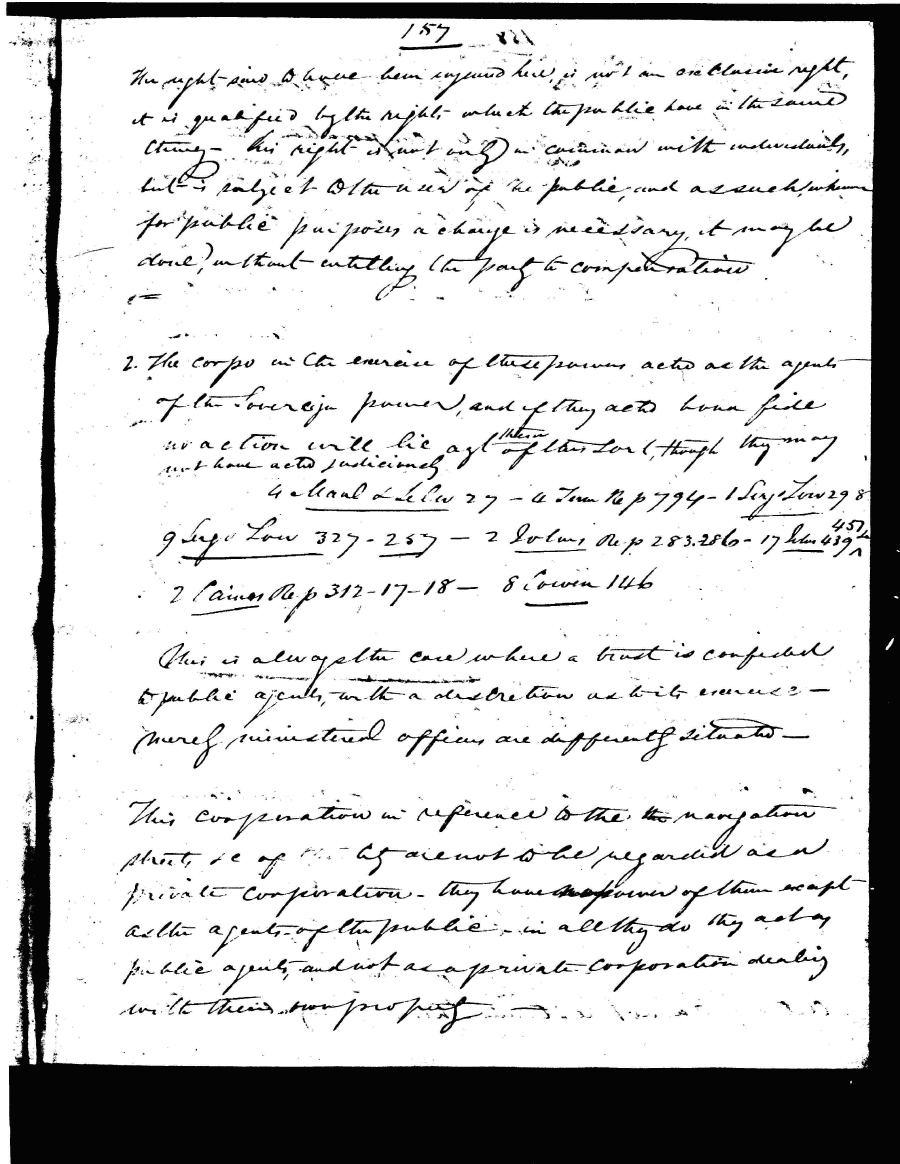 157
The right said to have been injured here, is not an exclusive right,
it is qualified by the rights which the public have in the same
thing – his right is not only in common with individuals,
but is subject to the user of the public, and as such, when
for public purposes a change is necessary, it may be
done, without entitling the party to compensation
2. The corpo in the exercise of these powers acted as the agents
of the Sovereign power, and if they acted bona fide
no action will lie agt them of this sort, though they may
not have acted judiciously
4 Maul & Selw 27 – 4 Term Rep 794 – 1 Serjt Low 298
9 Serjt Low 327 – 257 – 2 Johns Rep 283.286 – 17 Johns 439 451
2 Caines Rep 312–17–18 – 8 Cowen 146
This is always the case where a trust is confided
to public agents, with a discretion as to its exercise –
merely ministerial officers are differently situated –
This corporation in reference to the the navigation
streets &c of the City are not to be regarded as a
private corporation – they have no power of them except
as the agents of the public – in all they do they act as
public agents, and not as a private corporation dealing
with their own property –